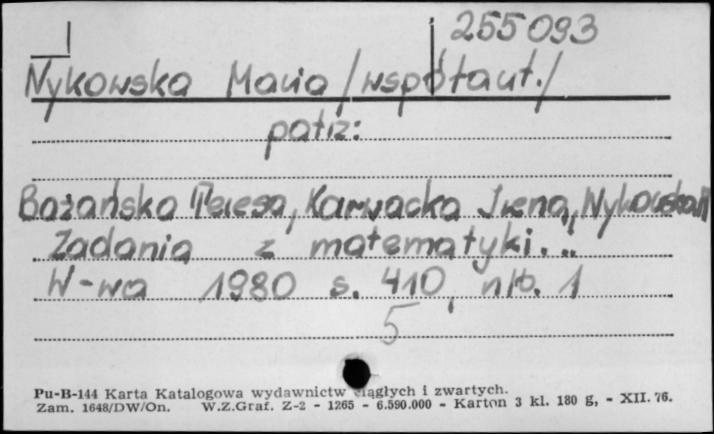 255093
Nykowska Maria /współaut./
patrz:
Bażańska Teresa, Karwacka Irena, Nykowska M
Zadania z matematyki...
W-wa 1980 s. 410, nlb. 1
5
Pu-B-144 Karta Katalogowa wydawnictw ciągłych i zwartych.
Zam. 1648/DW/On. W.Z.Graf. Z-2 - 1265 - 6.590.000 - Karton 3 kl. 180 g, - XII. 76.